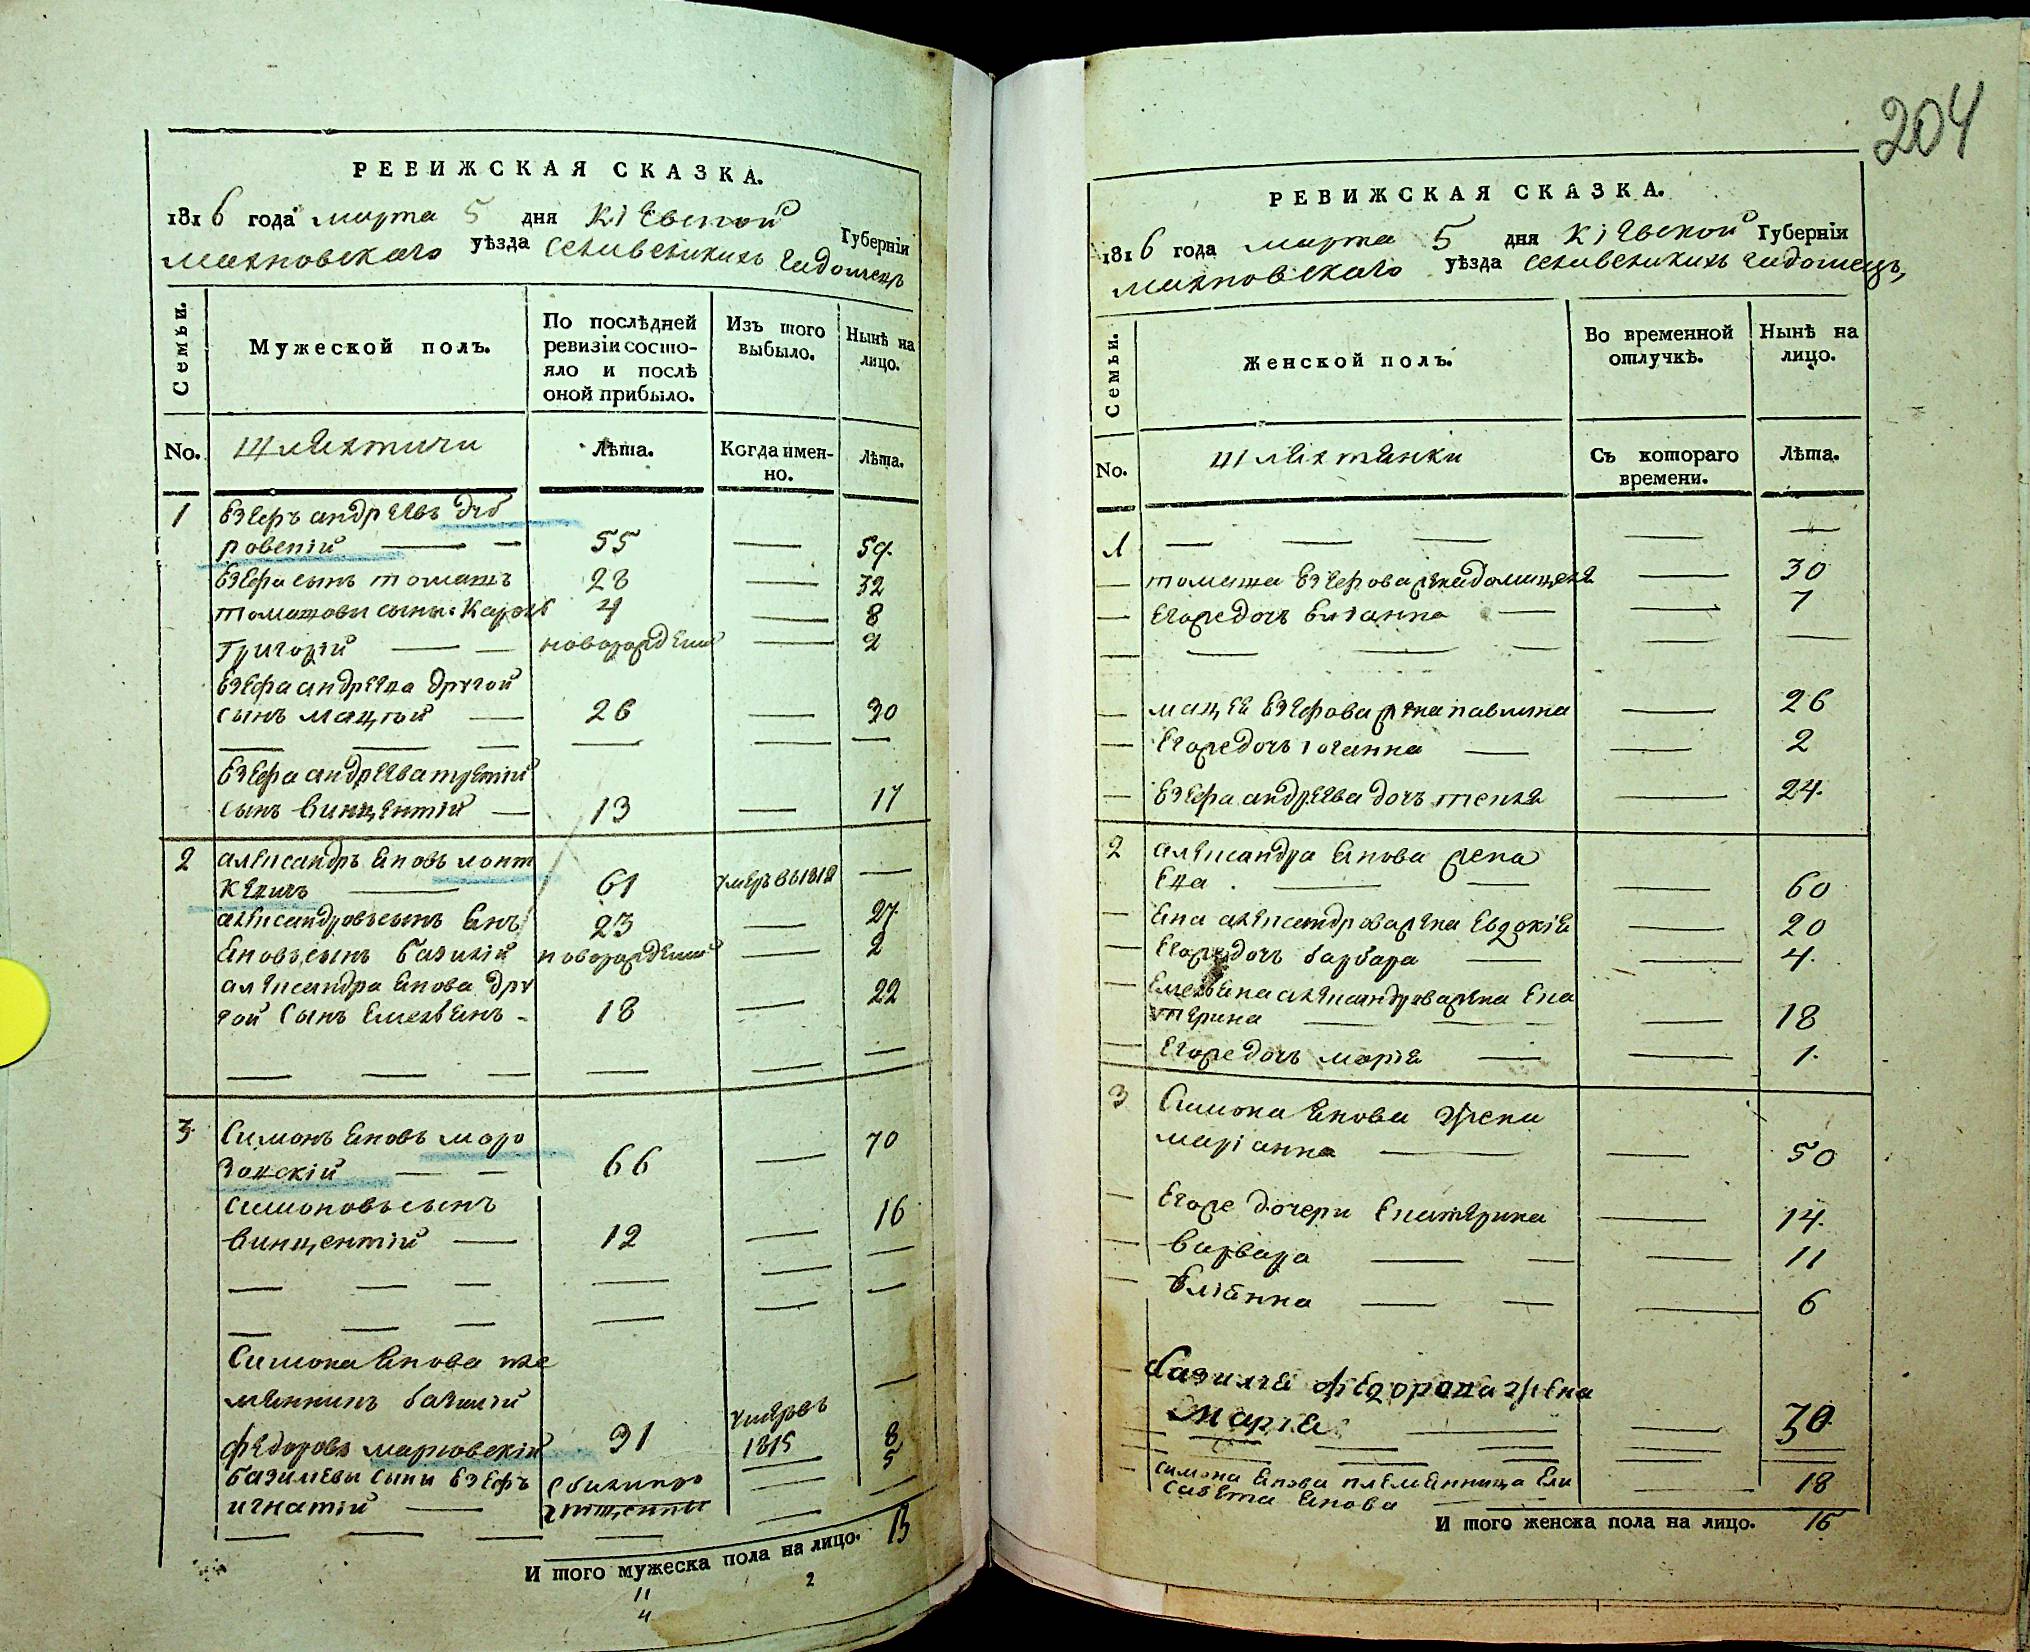 204
РЕВИЖСКАЯ СКАЗКА.
1816 года марта 5 дня Кіевской Губерніи
Махновскаго уѣзда
Семьи.
Мужеской полъ.
По послѣдней ревизіи состояло и послѣ оной прибыло.
Изъ того выбыло.
Нынѣ на лицо.
No. Шляхтичи Лѣта. Когда именно. Лѣта.
1 Езефъ андреевъ дуб
ровскій — — 55 — 59.
Езефа сынъ томашъ 28 — 32
томашови сыны: Кароль 4 — 8
Григорій — — новорожденный — 2
Езефа андреева другой
сынъ мацѣй — 26 — 30
— — — — — —
Езефа андреева третій
сынъ винцентій — 13 — 17
2 александръ яновъ
— 61 умеръ в 1812 —
александровъ сынъ янъ 23 — 27.
яновъ сынъ базилій новорожденный — 2
александра янова дру
гой сынъ емельянъ - 18 — 22
— — — — — —
3 Симонъ яновъ моро
— — 66 — 70
Симоновъ сынъ
винцентій — 12 — 16
— — — — — —
— — — — — —
Симона янова пле
мянникъ базилій
федоровъ 31 умеръ въ 1815 —
базилевы сыни Езефъ 8
игнатій — 5
— — — —
И того мужеска пола на лицо. 13
11 2
4
РЕВИЖСКАЯ СКАЗКА.
1816 года марта 5 дня Кіевской Губерніи
Махновскаго уѣзда
Семьи.
Женской полъ.
Во временной отлучкѣ.
Нынѣ на лицо.
No. Шляхтянки Съ котораго времени. Лѣта.
1 — — — — —
— томаша Езефова жена — 30
— Егоже дочь — — 7
— — — — — —
— мацея Езефова жена павлина — 26
— Егоже дочь іоганна — — 2
— Езефа андреева дочь текля — 24.
2 александра янова жена
Ева . — — — 60
— яна александрова жена Евдокія — 20
— Егоже дочь барбара — — 4.
— Емельяна александрова жена Ека
терина — — — — 18
— Егоже дочь марія — — 1.
3 Симона янова жена
маріанна — — 50
— Егоже дочери Екатерина — 14.
— варвара — — — 11
— — — — 6
— базилия федорова жена
марія — — 30
— — — — —
— Симона янова племянница Ели
савета янова — — 18
И того женска пола на лицо. 15